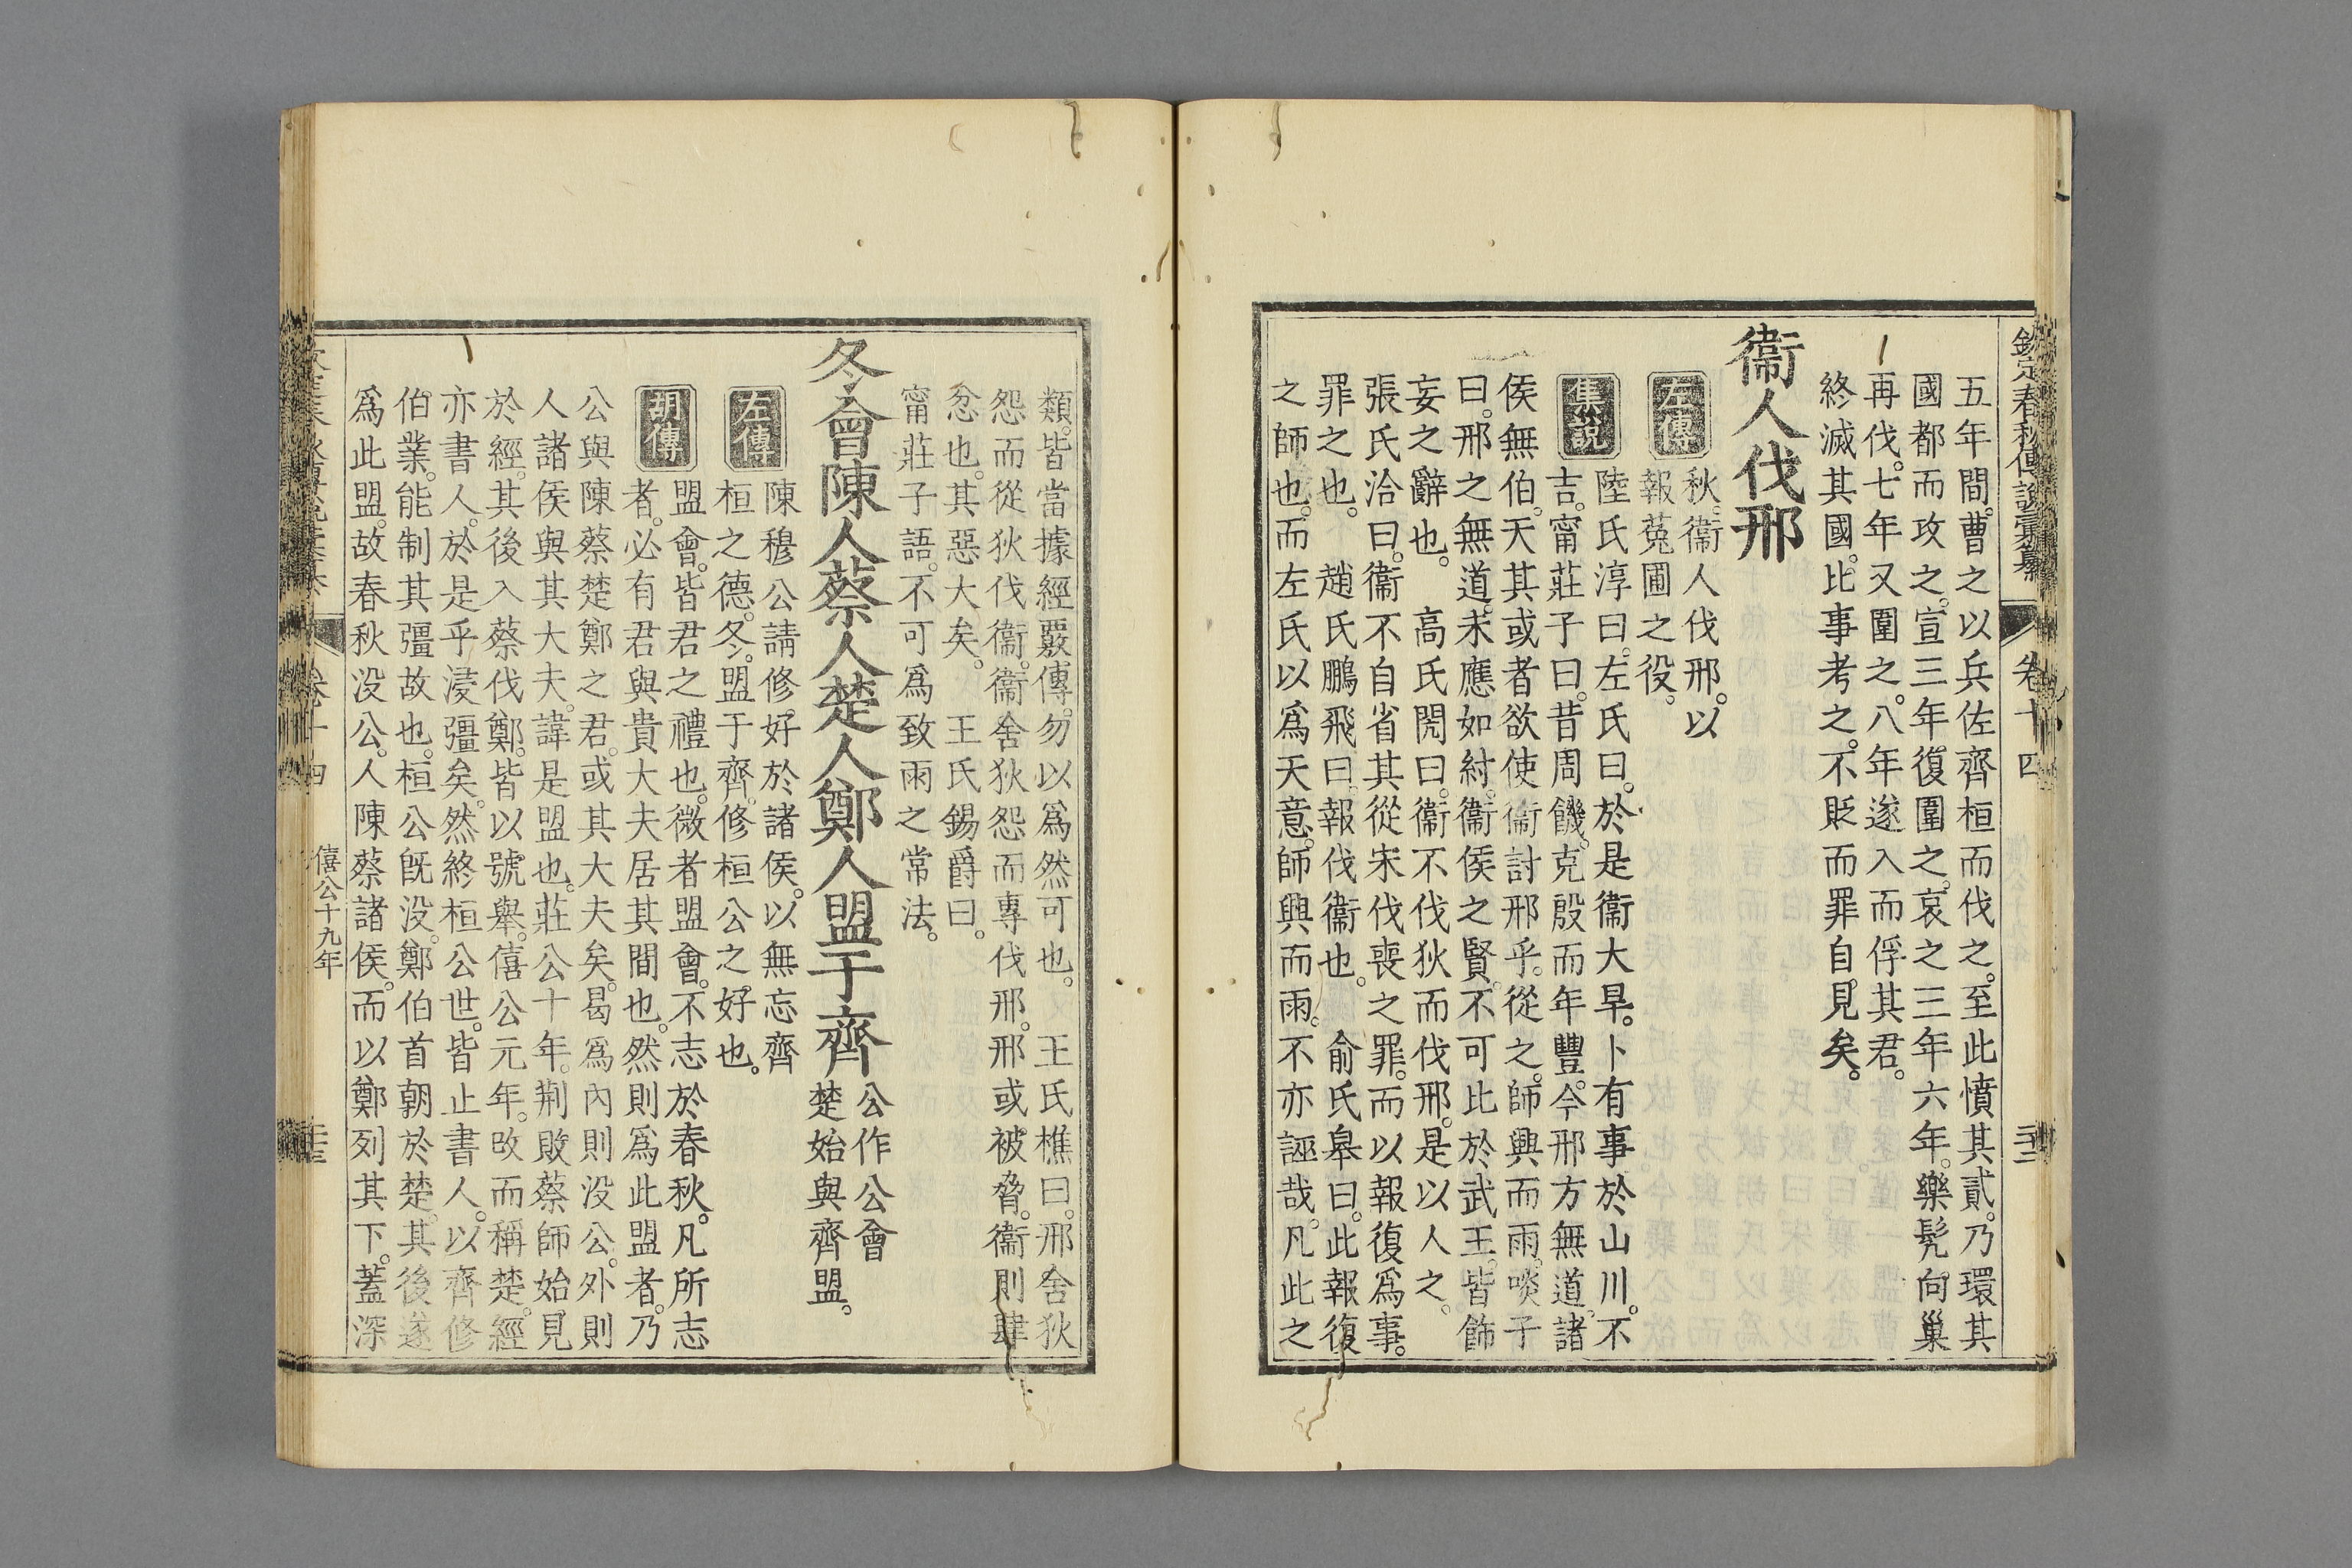 欽定春秋傳說彙纂 卷十四
五年間。曹之以兵佐齊桓而伐之。至此憤其貳。乃環其
國都而攻之。宣三年。復圍之。哀之三年六年。樂髡。向巢
再伐。七年又圍之。八年遂入而俘其君。
終滅其國。比事考之。不貶而罪自見矣。
衞人伐邢
左傳 秋。衞人伐邢。以
報菟圃之役。
集說 陸氏淳曰。左氏曰。於是衞大旱。卜有事於山川。不
吉。甯莊子曰。昔周饑。克殷而年豐。今邢方無道。諸
侯無伯。天其或者欲使衞討邢乎。從之。師興而雨。啖子
曰。邢之無道。未應如紂。衞侯之賢。不可比於武王。皆飾
妄之辭也。 高氏閌曰。衞不伐狄而伐邢。是以人之。
張氏洽曰。衞不自省其從宋伐喪之罪。而以報復爲事。
罪之也。 趙氏鵬飛曰。報伐衞也。 俞氏皋曰。此報復
之師也。而左氏以爲天意。師興而雨。不亦誣哉。凡此之
類。皆當據經覈傳。勿以爲然可也。 王氏樵曰。邢舍狄
怨而從狄伐衞。衞舍狄怨而專伐邢。邢或被脅。衞則肆
忿也。其惡大矣。 王氏錫爵曰。
甯莊子語。不可爲致雨之常法。
冬會陳人蔡人楚人鄭人盟于齊 公作公會
楚始與齊盟。
左傳 陳穆公請修好於諸侯。以無忘齊
桓之德。冬。盟于齊。修桓公之好也。
胡傳 盟會。皆君之禮也。微者盟會。不志於春秋。凡所志
者。必有君與貴大夫居其間也。然則爲此盟者。乃
公與陳蔡楚鄭之君。或其大夫矣。曷爲內則没公。外則
人諸侯與其大夫。諱是盟也。莊公十年。荆敗蔡師。始見
於經。其後入蔡伐鄭。皆以號舉。僖公元年。改而稱楚。經
亦書人。於是乎浸彊矣。然終桓公世。皆止書人。以齊修
伯業。能制其彊故也。桓公旣没。鄭伯首朝於楚。其後遂
爲此盟。故春秋没公。人陳蔡諸侯。而以鄭列其下。蓋深
卷十四 僖公十九年